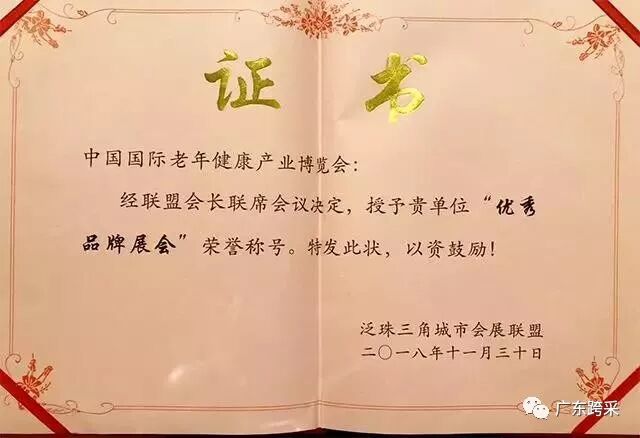 证书
中国国际老年健康产业博览会：
经联盟会长联席会议决定，授予贵单位“优秀
品牌展会”荣誉称号。特发此状，以资鼓励！
泛珠三角城市会展联盟
二〇一八年十一月三十日
广东跨采